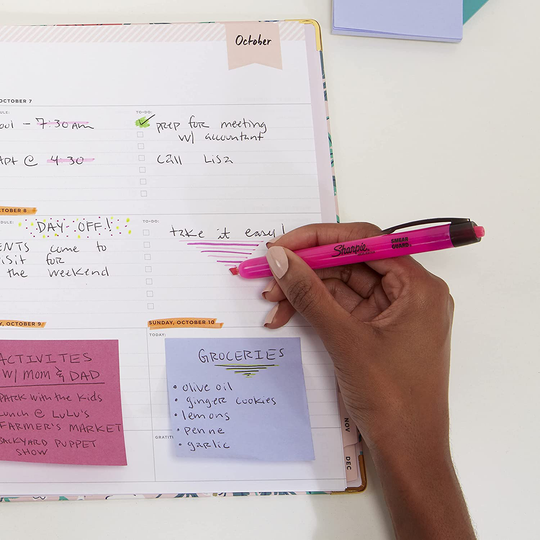 October
OCTOBER 7
TO-DO:
- 7:30 am
prep for meeting
w/ accountant
@ 4:30
call Lisa
TOBER 8,
TO-DO:
DAY OFF!
take it easy!
ENTS come to
visit for
the weekend
Sharpie
SMEAR GUARD
Y, OCTOBER 9,
SUNDAY, OCTOBER 10,
TODAY:
ACTIVITES
w/ MOM & DAD
PARK with the kids
Lunch @ LuLu's
FARMER'S MARKET
BACKYARD PUPPET
SHOW
GROCERIES
• olive oil
• ginger cookies
• lemons
• penne
• garlic
GRATIT
NOV
DEC